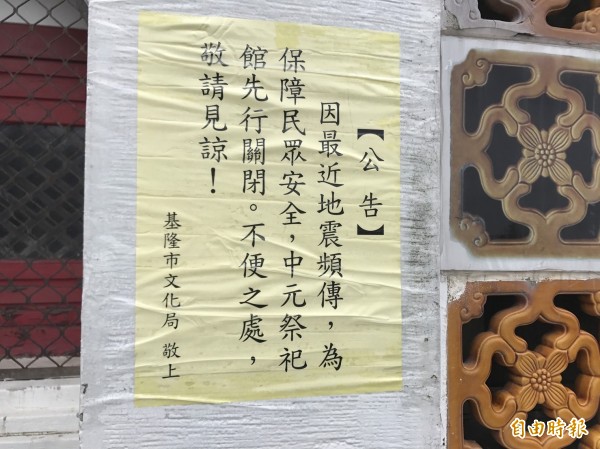 【公告】
因最近地震頻傳，為
保障民眾安全，中元祭祀
館先行關閉。不便之處，
敬請見諒！
基隆市文化局 敬上
自由時報